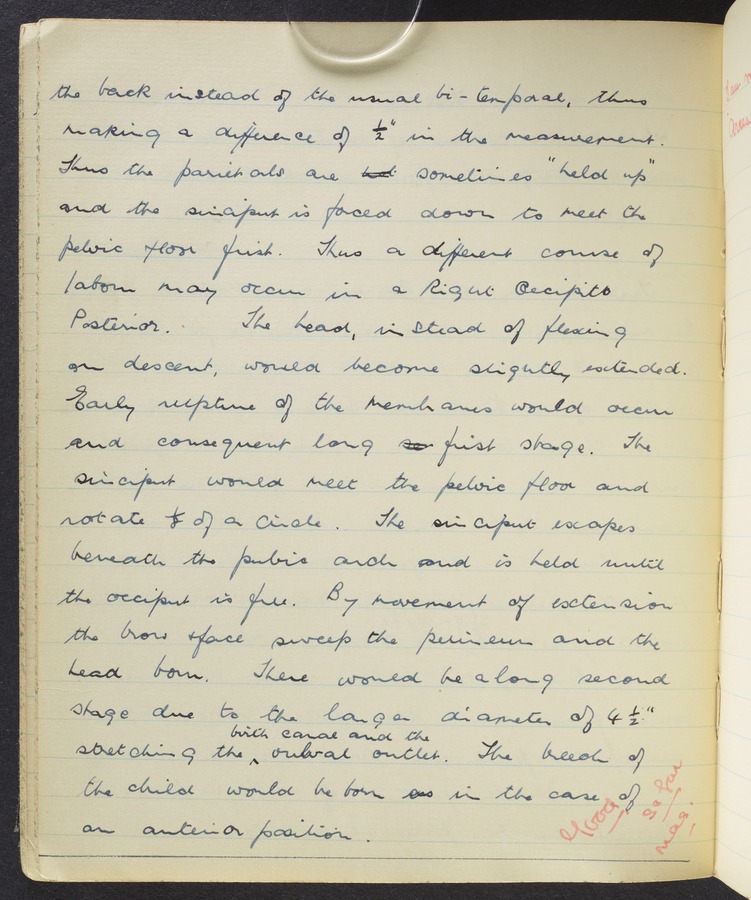 the back instead of the usual bi-temporal, thus
making a difference of ½" in the measurement.
Thus the parietals are not sometimes "held up"
and the sinciput is forced down to meet the
pelvic floor first. Thus a different course of
labour may occur in a Right Occipito
Posterior. The head, instead of flexing
on descent, would become slightly extended.
Early rupture of the membranes would occur
and consequent long first stage. The
sinciput would meet the pelvic floor and
rotate ⅛ of a circle. The sinciput escapes
beneath the pubic arch and is held until
the occiput is free. By movement of extension
the brow & face sweep the perineum and the
head born. There would be a long second
stage due to the larger diameter of 4½"
birth canal and the
stretching the ‸ vulval outlet. The breech of
the child would be born as in the case of
an anterior position.
Good
so far